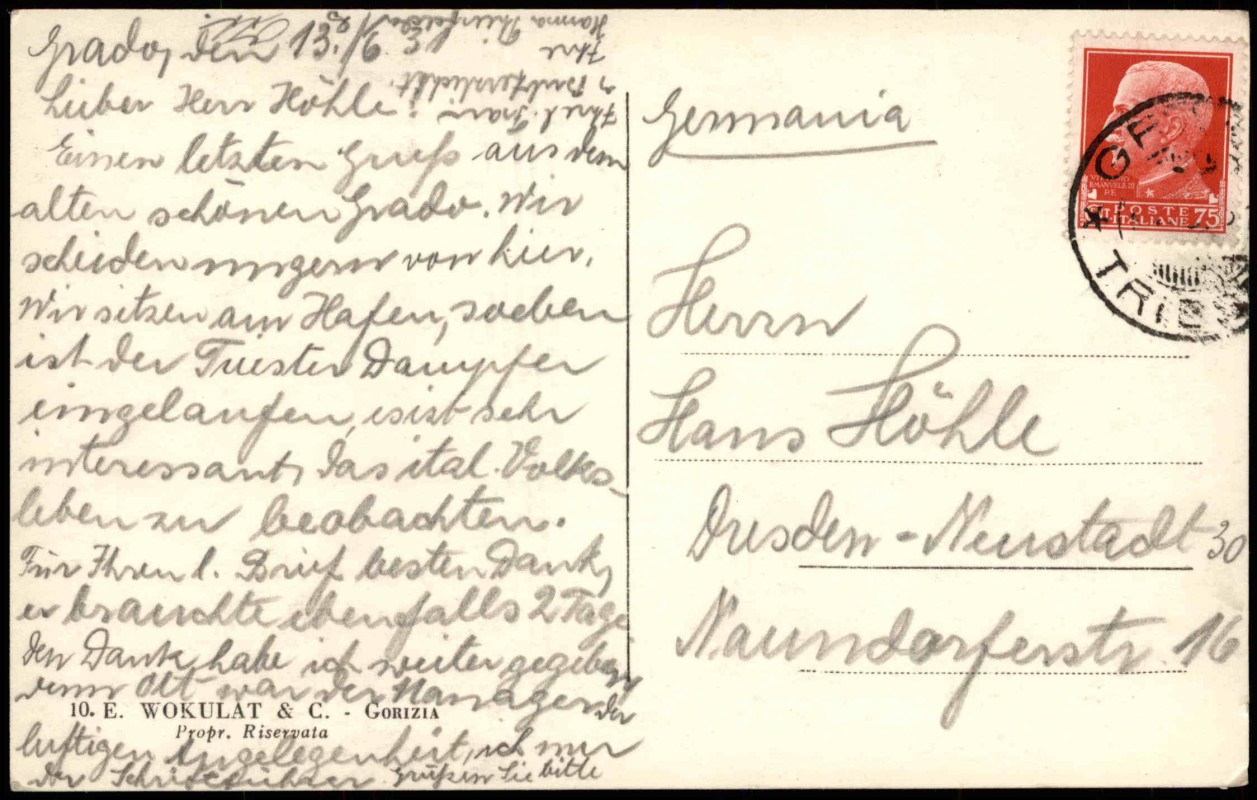 Grado, den 13./6. 3
Lieber Herr Höhle!
Einen letzten Gruß aus dem
alten schönen Grado. Wir
scheiden ungern von hier.
Wir sitzen am Hafen, soeben
ist der Triester Dampfer
eingelaufen, es ist sehr
interessant, das ital. Volks-
leben zu beobachten.
Für Ihren l. Brief besten Dank,
er brauchte ebenfalls 2 Tage
den Dank habe ich weiter gegeben,
denn Ott war der Manager der
luftigen Angelegenheit, ich nur
der Schriftführer. Grüßen Sie bitte
Ihre l. Frau
Ihre
Hanna
10. E. WOKULAT & C. - GORIZIA
Propr. Riservata
Germania
Herrn
Hans Höhle
Dresden-Neustadt 30
Naundorferstr. 16
VITTORIO
EMANUELE III
RE
POSTE
ITALIANE 75
TRIES